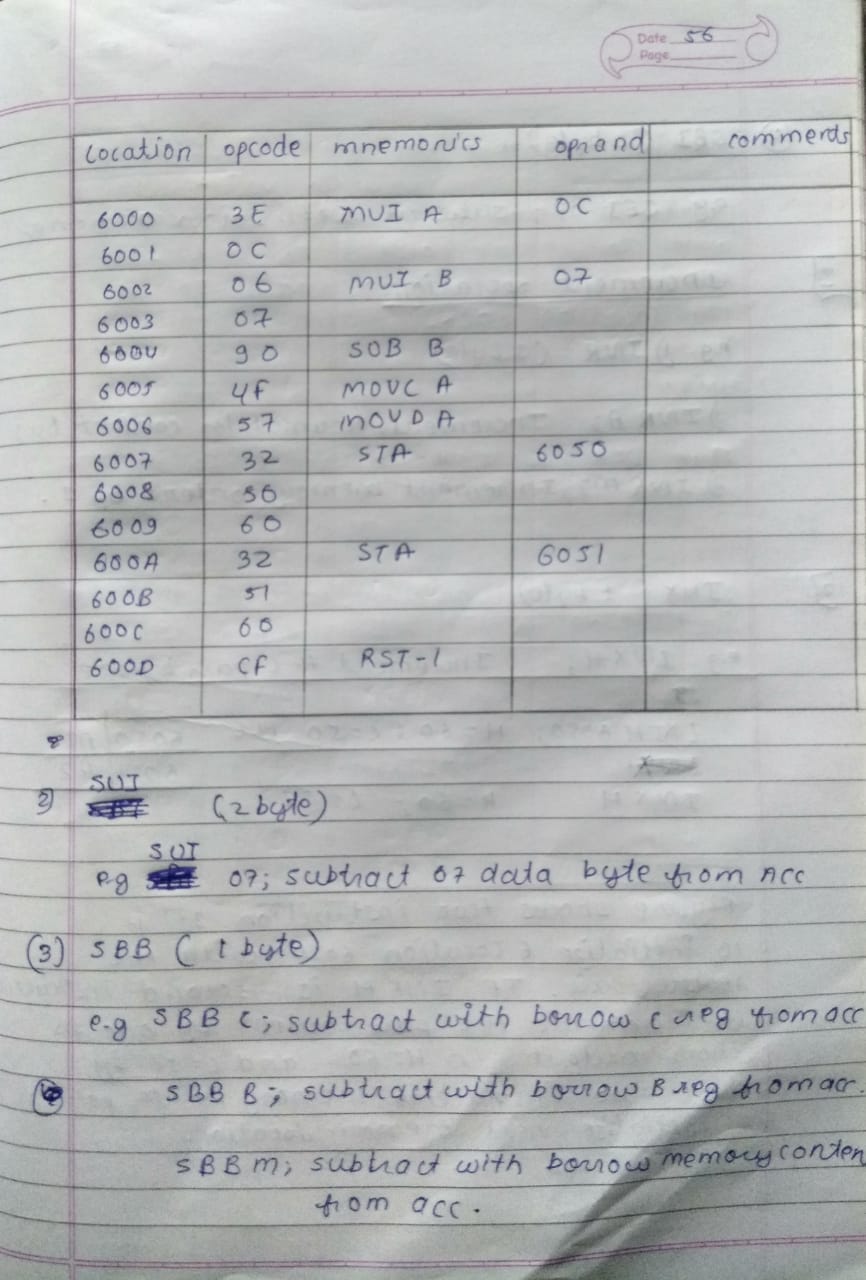 Date 56
Page
Location opcode mnemonics oprand comments
6000 3E MUI A 0C
6001 0C
6002 06 MUI B 07
6003 07
6004 90 SOB B
6005 4F MOVC A
6006 57 MOVD A
6007 32 STA 6050
6008 50
6009 60
600A 32 STA 6051
600B 51
600C 60
600D CF RST-1
2) SUI (2 byte)
e.g SUI 07; subtract 07 data byte from Acc
(3) SBB (1 byte)
e.g SBB C; subtract with borrow C reg from acc
SBB B; subtract with borrow B reg from acc.
SBB m; subtract with borrow memory conten
from acc.